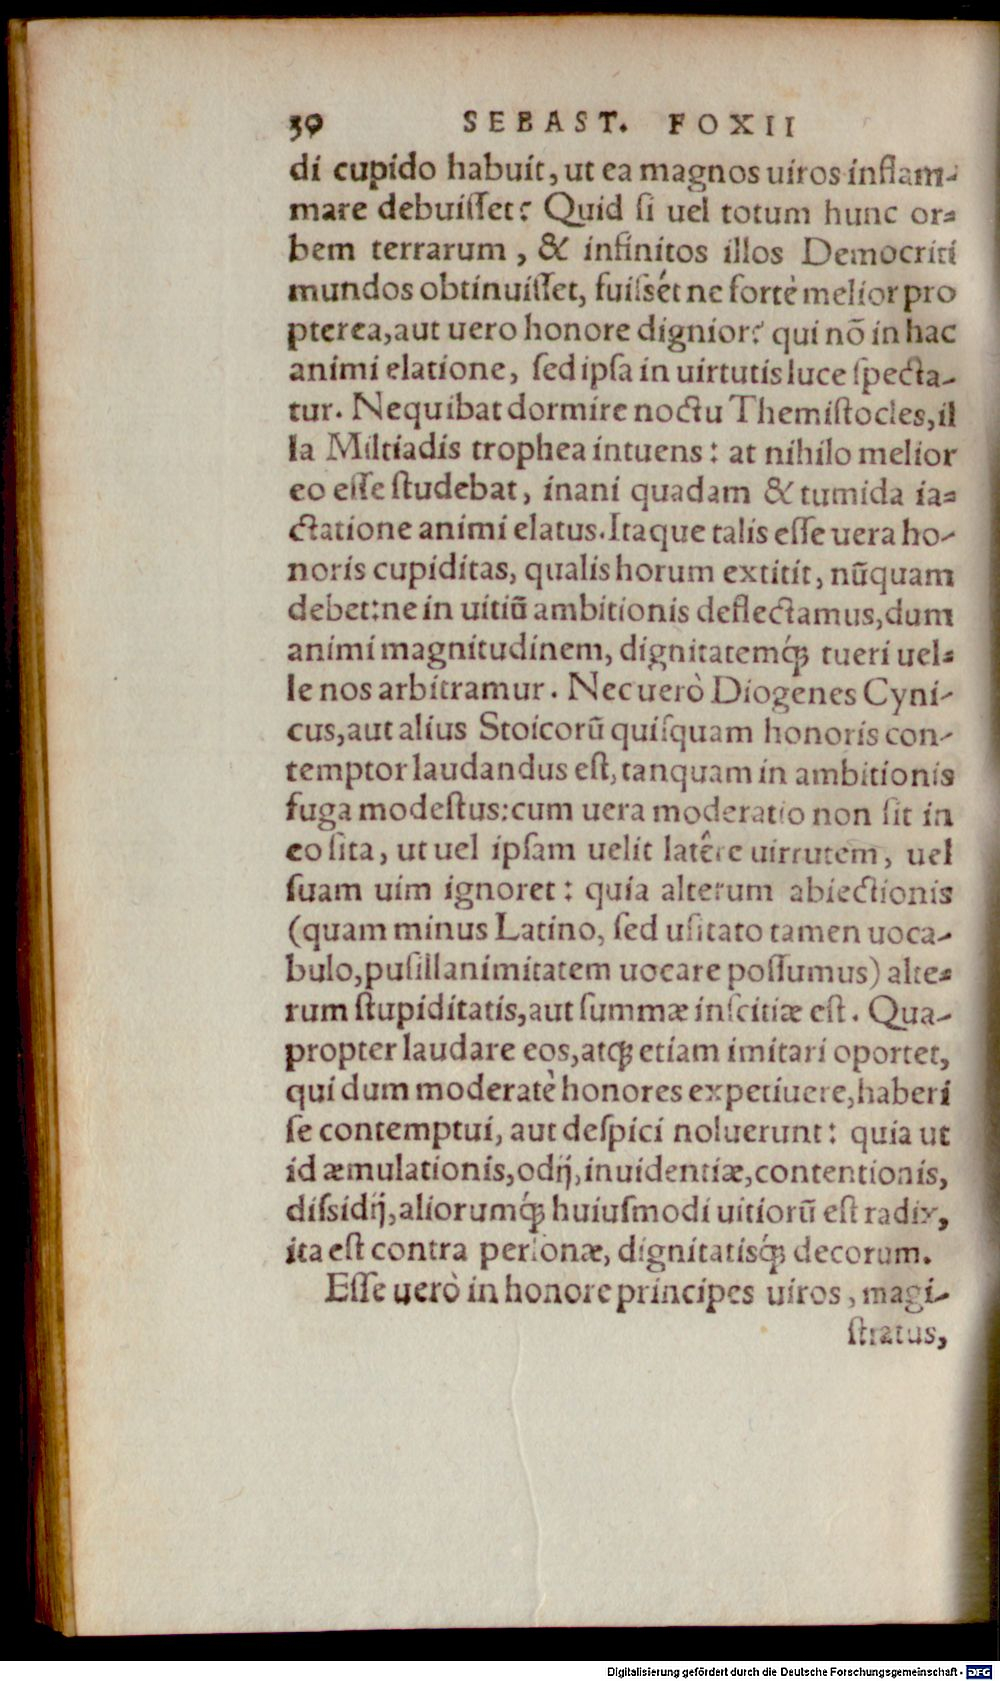 30 SEBAST. FOXII
di cupido habuit, ut ea magnos uiros inflam-
mare debuiſſet? Quid ſi uel totum hunc or-
bem terrarum, & infinitos illos Democriti
mundos obtinuiſſet, fuiſsét ne fortè melior pro
pterea, aut uero honore dignior? qui nō in hac
animi elatione, ſed ipſa in uirtutis luce ſpecta-
tur. Nequibat dormire noctu Themiſtocles, il
la Miltiadis trophea intuens: at nihilo melior
eo eſſe ſtudebat, inani quadam & tumida ia-
ctatione animi elatus. Itaque talis eſſe uera ho-
noris cupiditas, qualis horum extitit, nūquam
debet: ne in uitiū ambitionis deflectamus, dum
animi magnitudinem, dignitatemq́ꝫ tueri uel-
le nos arbitramur. Nec uerò Diogenes Cyni-
cus, aut alius Stoicorū quiſquam honoris con-
temptor laudandus eſt, tanquam in ambitionis
fuga modeſtus: cum uera moderatio non ſit in
eo ſita, ut uel ipſam uelit latêre uirtutem, uel
ſuam uim ignoret: quia alterum abiectionis
(quam minus Latino, ſed uſitato tamen uoca-
bulo, puſillanimitatem uocare poſſumus) alte-
rum ſtupiditatis, aut ſummæ inſcitiæ eſt. Qua-
propter laudare eos, atqꝫ etiam imitari oportet,
qui dum moderatè honores expetiuere, haberi
ſe contemptui, aut deſpici noluerunt: quia ut
id æmulationis, odij, inuidentiæ, contentionis,
diſsidij, aliorumq́ꝫ huiuſmodi uitiorū eſt radix,
ita eſt contra perſonæ, dignitatisq́ꝫ decorum.
Eſſe uerò in honore principes uiros, magi-
ſtratus,
Digitalisierung gefördert durch die Deutsche Forschungsgemeinschaft - DFG